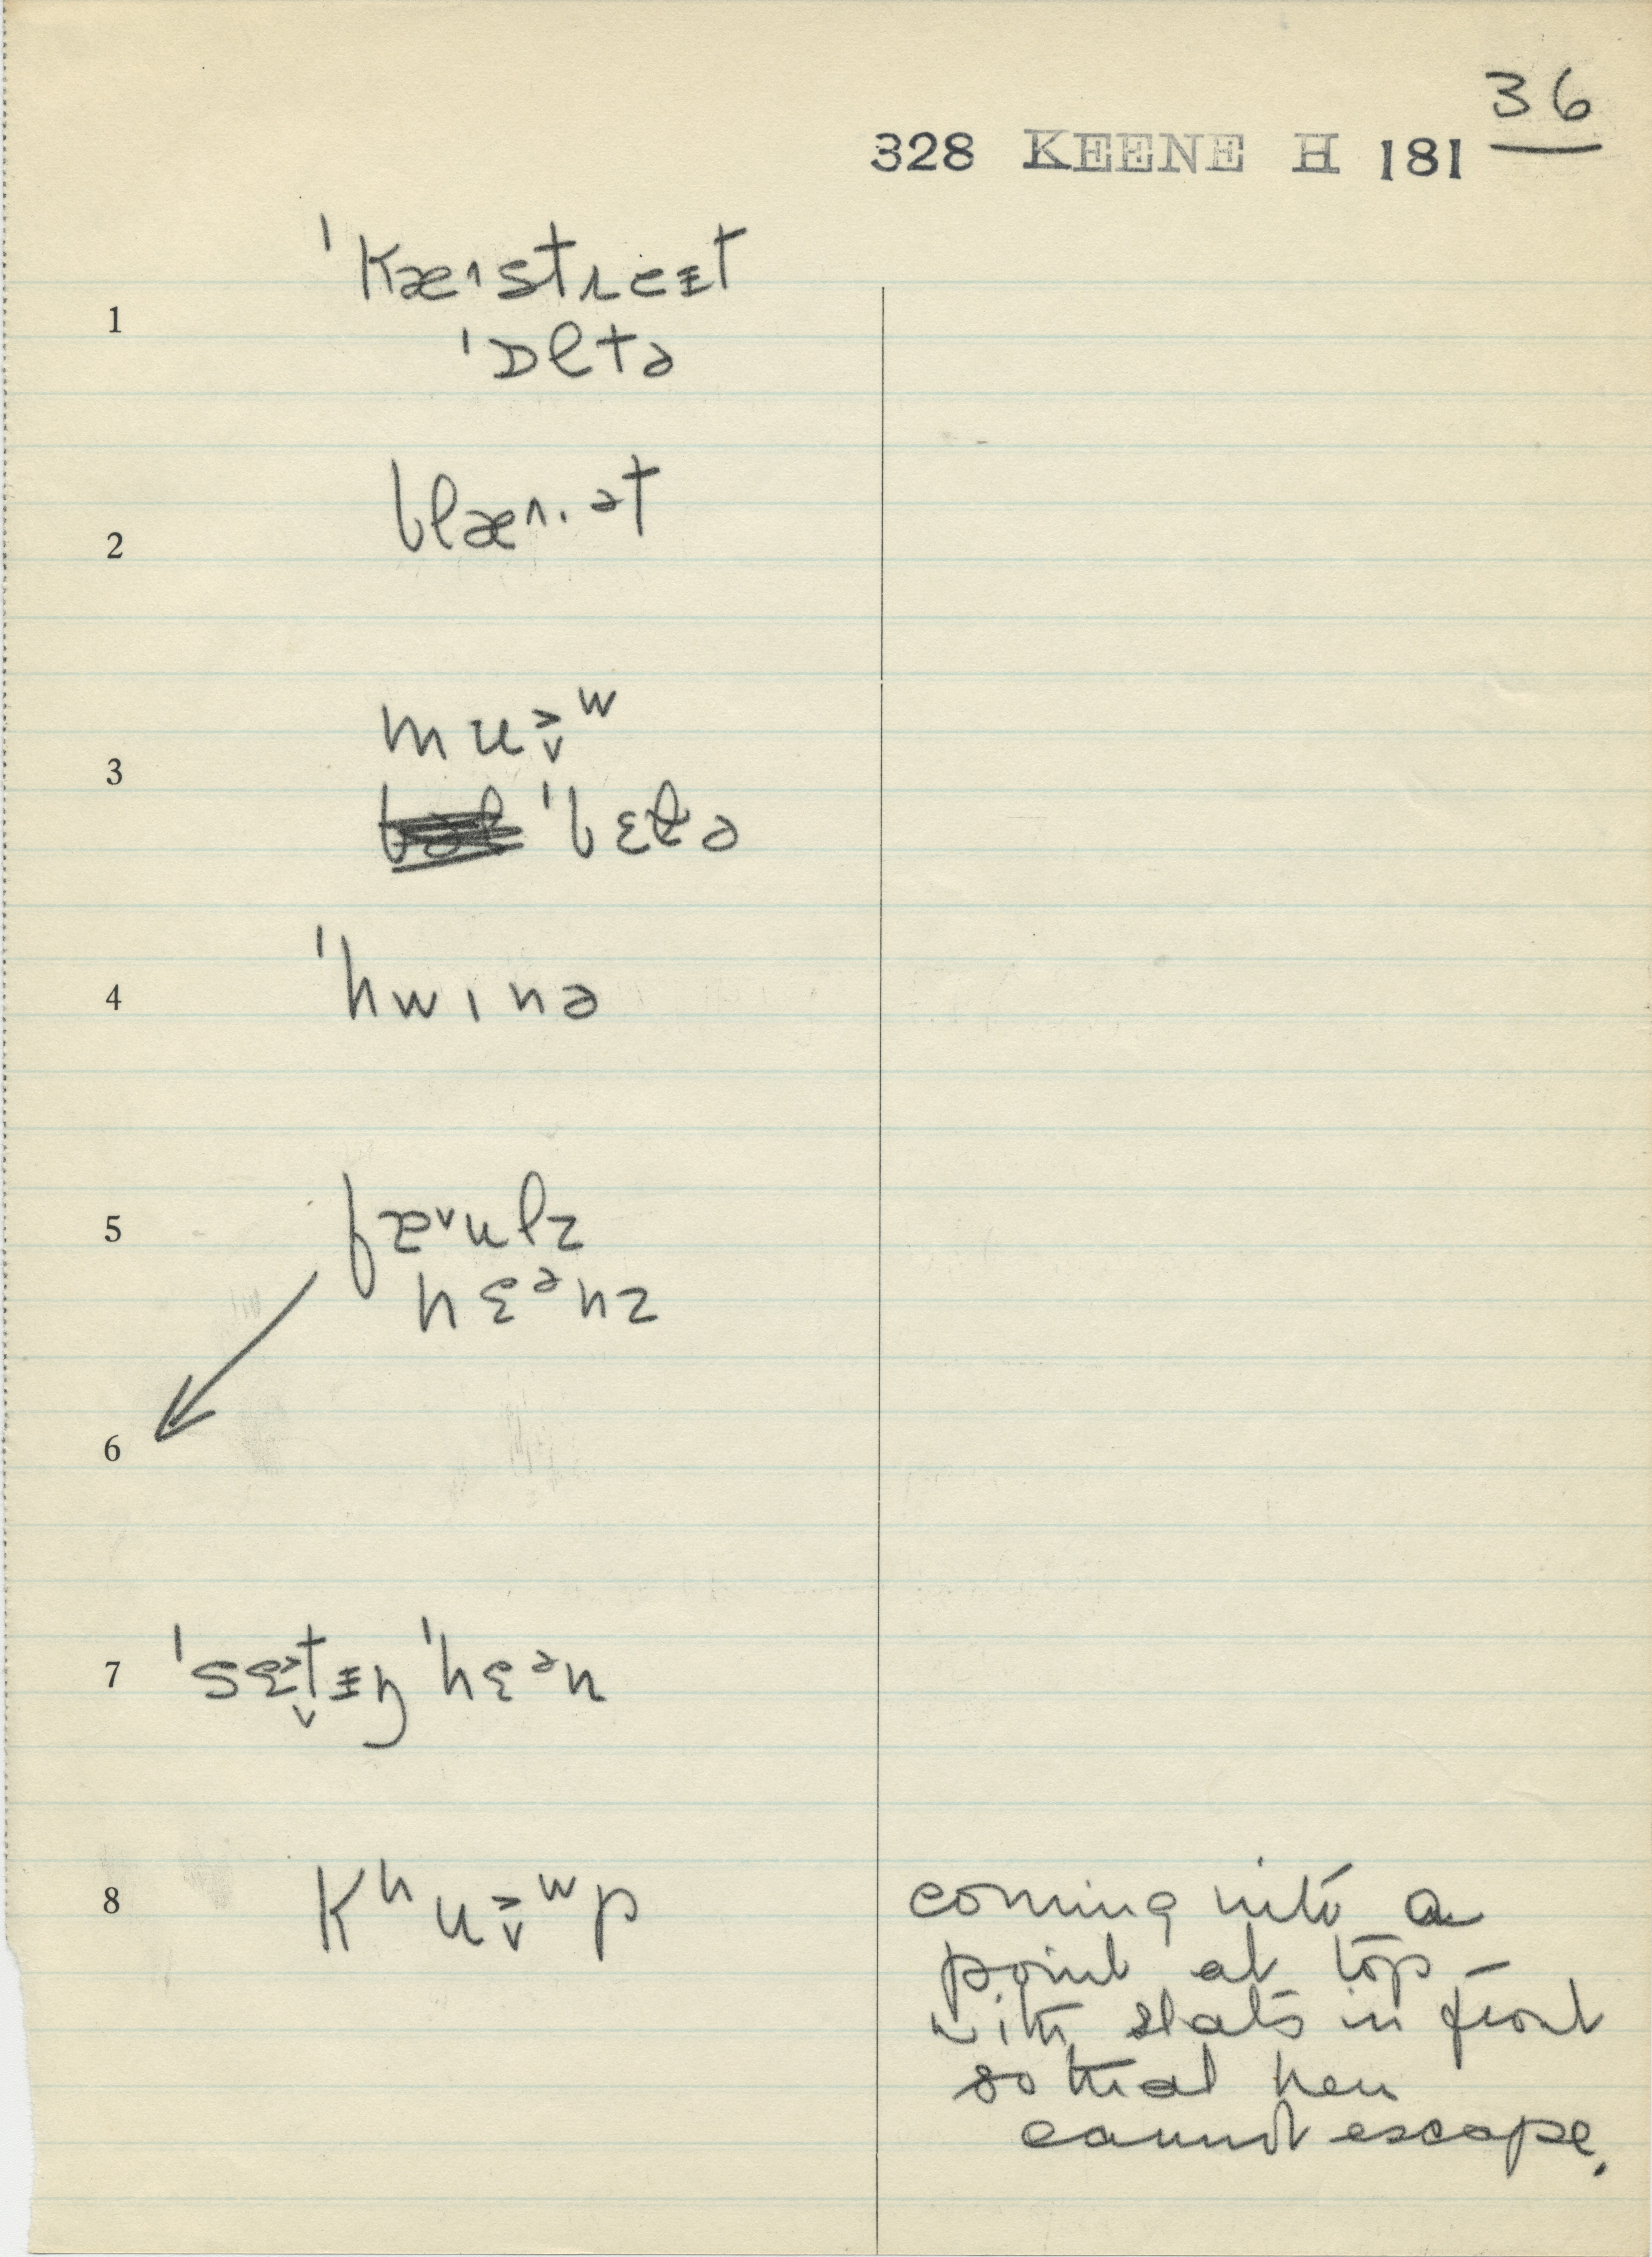 36
328 KEENE H 181
1 ˈkæˑstreᵻt
ˈɒltə
2 blæ^ˑət
3 mu˃˅ʷ
ˈbɛlə
4 ˈhwɪnə
5 fæ˅ulz
hɛᵊnz
6
7 ˈsɛ˃˅tᵻŋ ˈhɛᵊn
8 kʰu˃˅ʷp
coming into a
point at top –
with slats in front
so that hen
cannot escape.